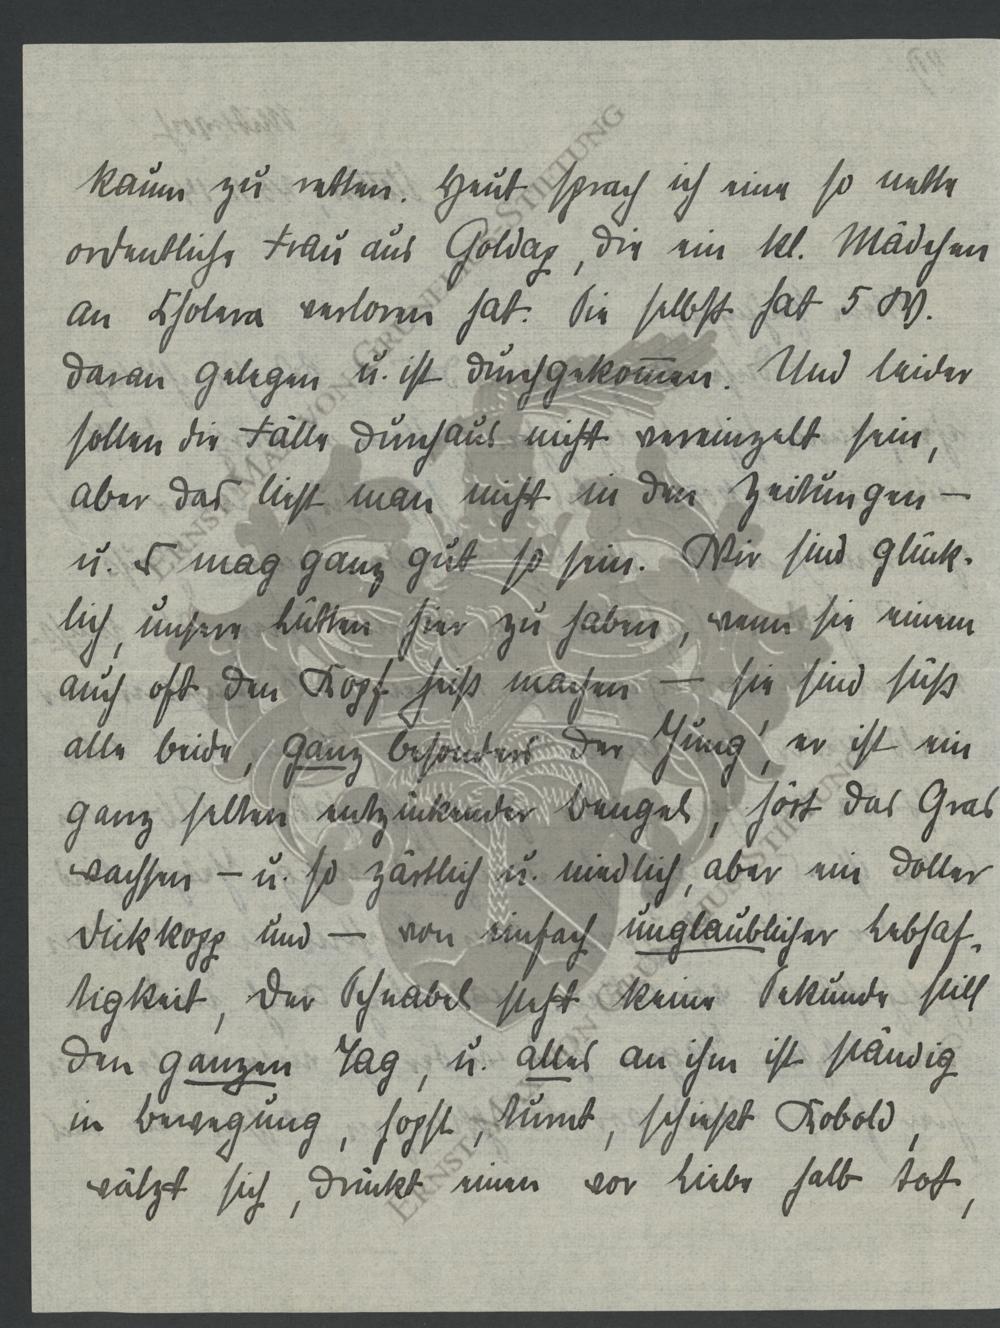 kaum zu retten. Heut sprach ich eine so nette
ordentliche Frau aus Goldap, die ein kl. Mädchen
an Cholera verloren hat. Sie selbst hat 5 W.
daran gelegen u. ist durchgekom̄en. Und leider
sollen die Fälle durchaus nicht vereinzelt sein,
aber das liest man nicht in den Zeitungen —
u. mag ganz gut so sein. Wir sind glück-
lich, unsere Lütten hier zu haben, wenn sie einem
auch oft den Kopf heiß machen — sie sind süß
alle beide, ganz besonders der Jung', er ist ein
ganz selten entzückender Bengel, hört das Gras
wachsen – u. so zärtlich u. niedlich, aber ein doller
Dickkopp und — von einfach unglaublicher Lebhaf-
tigkeit, der Schnabel steht keine Sekunde still
den ganzen Tag, u. alles an ihm ist ständig
in Bewegung, hopst, turnt, schießt Kobold,
wälzt sich, drückt einen vor Liebe halb tot,
ERNST MAX VON GRUNELIUS-STIFTUNG
ERNST MAX VON GRUNELIUS-STIFTUNG